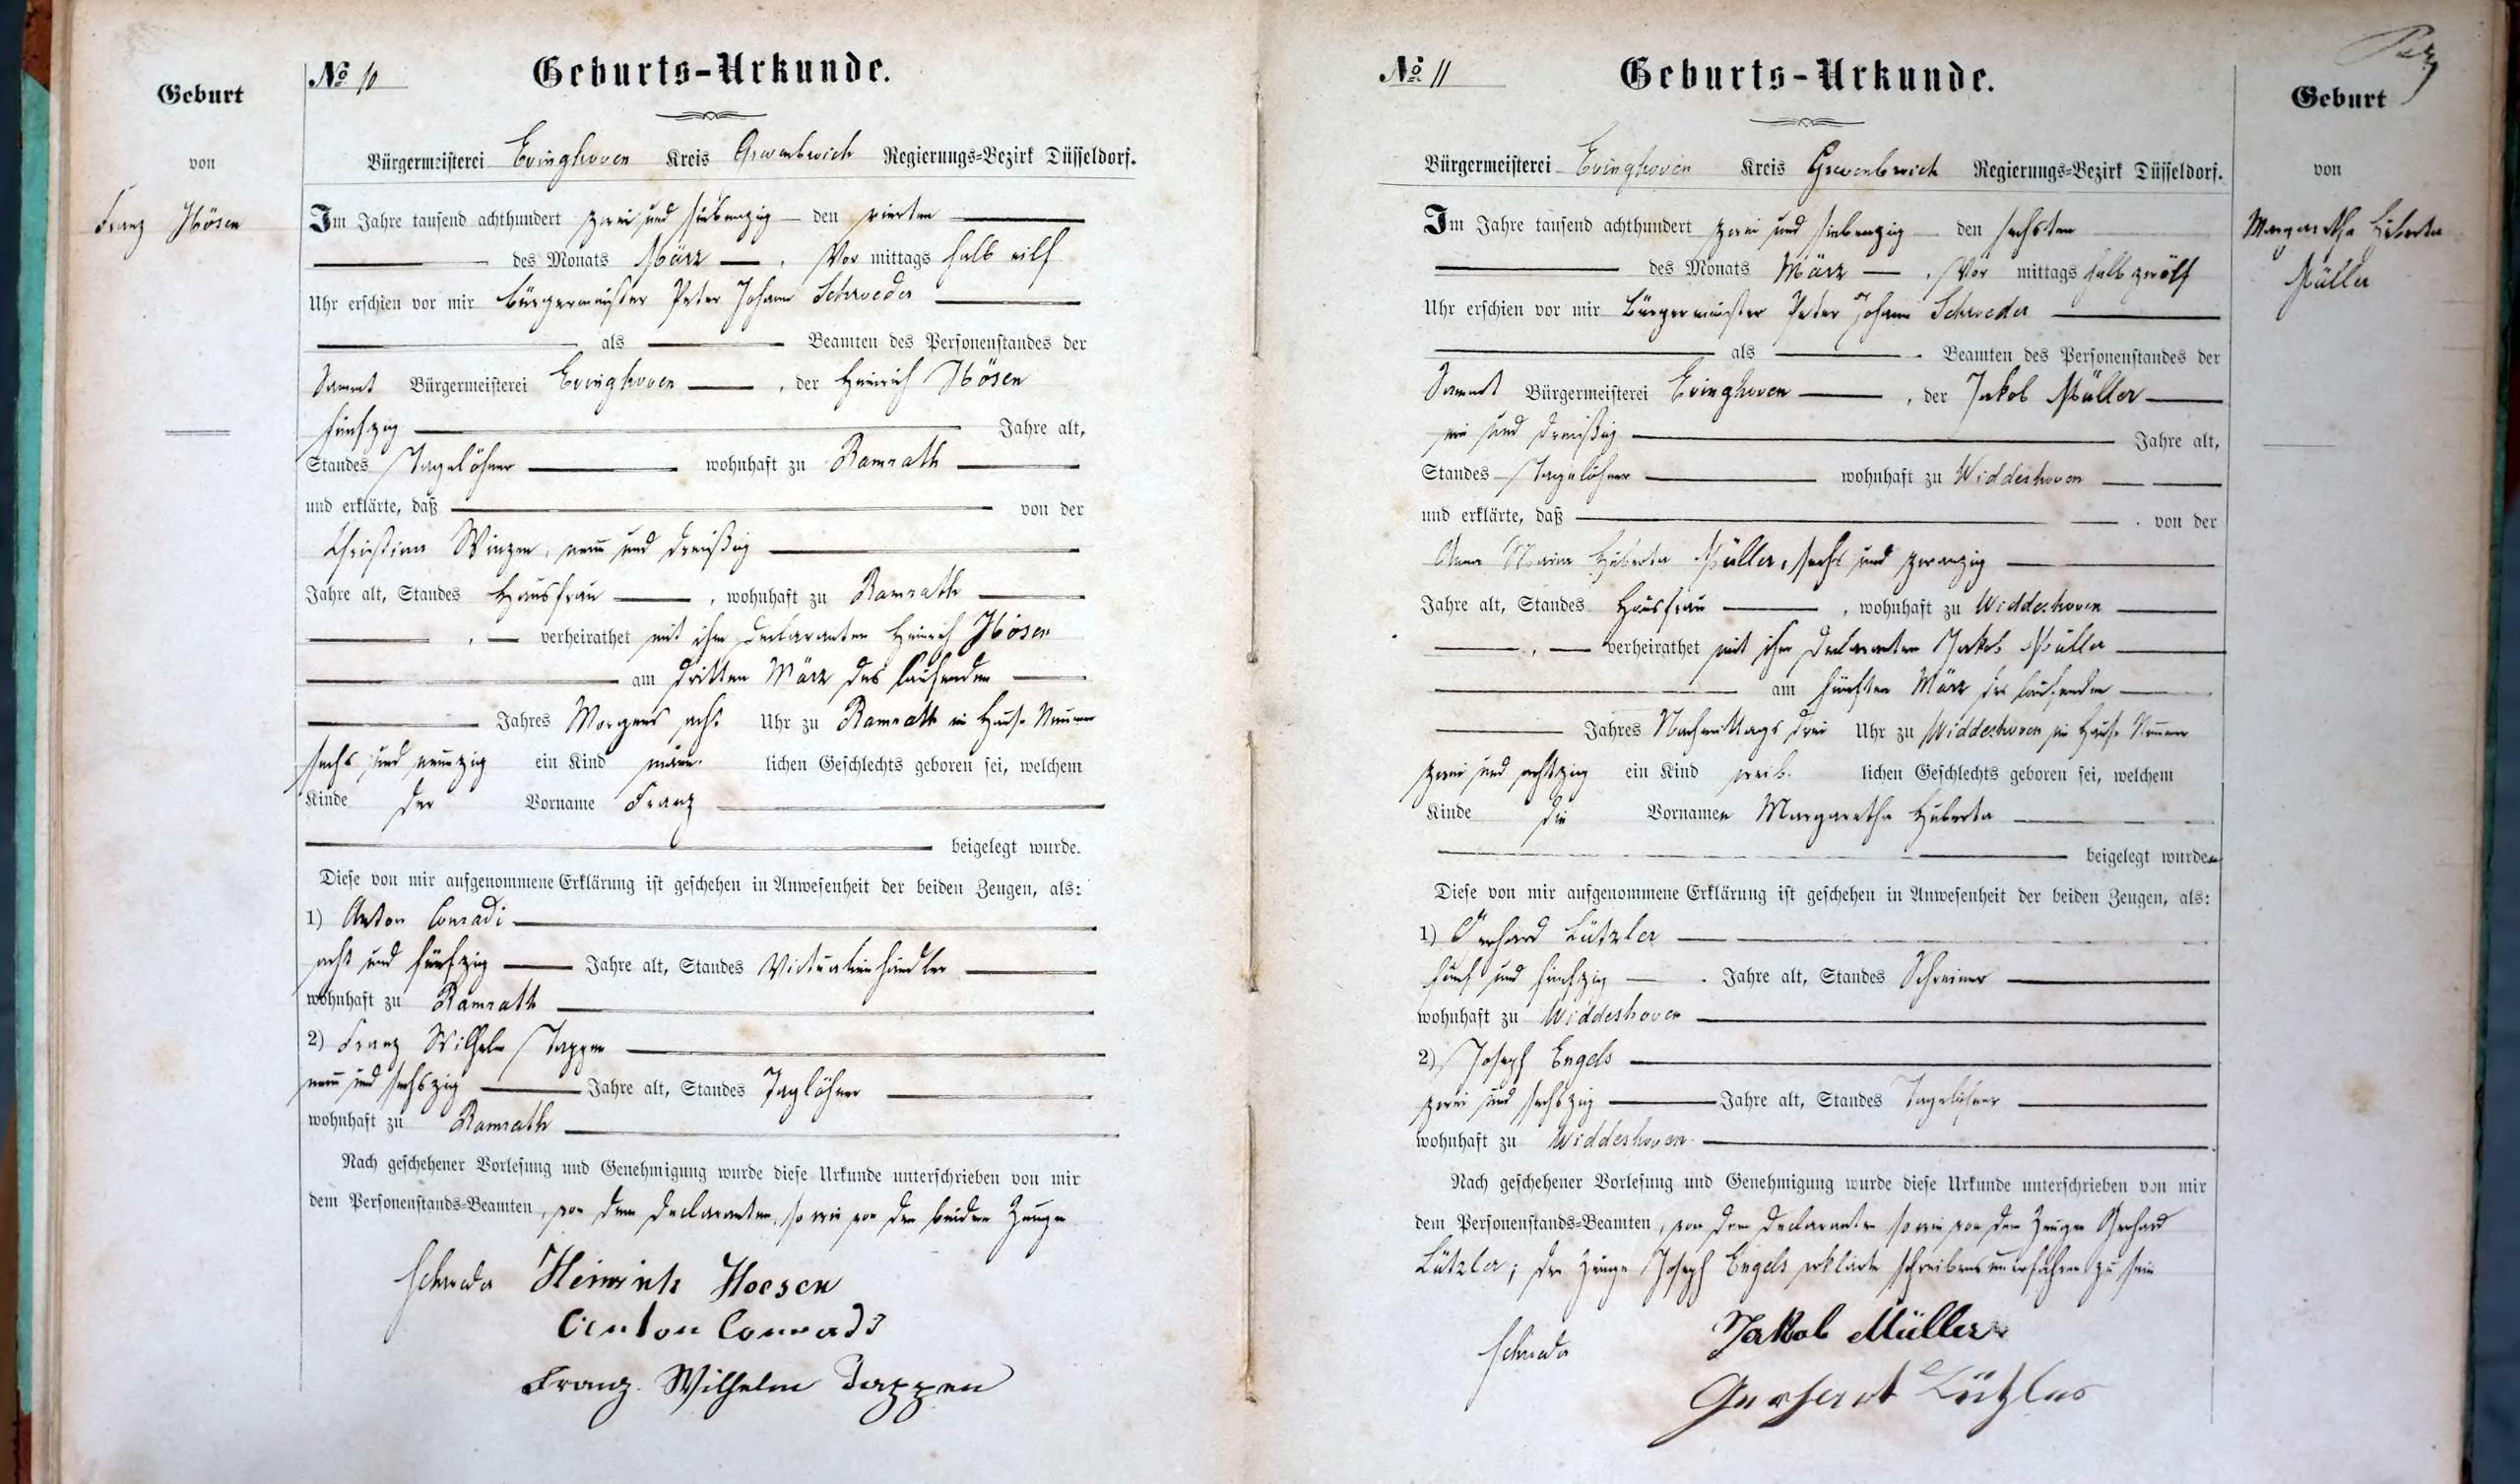 Geburt
von
Franz Hösen
No 10
Geburts-Urkunde.
Bürgermeisterei Evinghoven Kreis Grevenbroich Regierungs-Bezirk Düsseldorf.
Im Jahre tausend achthundert zwei und siebenzig den vierten
des Monats März, Vor mittags halb eilf
Uhr erschien vor mir Bürgermeister Peter Johann Schroeder
als Beamten des Personenstandes der
Sammt Bürgermeisterei Evinghoven, der Heinrich Hösen
fünfzig Jahre alt,
Standes Tagelöhner wohnhaft zu Ramrath
und erklärte, daß von der
Christina Winzen, neun und dreißig
Jahre alt, Standes Hausfrau, wohnhaft zu Ramrath
, verheirathet mit ihm Declaranten Heinrich Hösen
am dritten März des laufenden
Jahres Morgens acht Uhr zu Ramrath im Hause Nummer
sechs und neunzig ein Kind männ. lichen Geschlechts geboren sei, welchem
Kinde der Vorname Franz
beigelegt wurde.
Diese von mir aufgenommene Erklärung ist geschehen in Anwesenheit der beiden Zeugen, als:
1) Anton Conradi
acht und fünfzig Jahre alt, Standes Victualienhändler
wohnhaft zu Ramrath
2) Franz Wilhelm Tappen
neun und sechszig Jahre alt, Standes Taglöhner
wohnhaft zu Ramrath
Nach geschehener Vorlesung und Genehmigung wurde diese Urkunde unterschrieben von mir
dem Personenstands-Beamten, von dem Declaranten, so wie von den beiden Zeugen
Schroeder Heinrich Hoesen
Anton Conradi
Franz Wilhelm Tappen
No 11
Geburts-Urkunde.
Bürgermeisterei Evinghoven Kreis Grevenbroich Regierungs-Bezirk Düsseldorf.
Im Jahre tausend achthundert zwei und siebenzig den sechsten
des Monats März, Vor mittags halb zwölf
Uhr erschien vor mir Bürgermeister Peter Johann Schroeder
als Beamten des Personenstandes der
Sammt Bürgermeisterei Evinghoven, der Jakob Müller
ein und dreißig Jahre alt,
Standes Tagelöhner wohnhaft zu Widdeshoven
und erklärte, daß von der
Anna Maria Huberta Müller, sechs und zwanzig
Jahre alt, Standes Hausfrau, wohnhaft zu Widdeshoven
, verheirathet mit ihm Declaranten Jakob Müller
am fünften März des laufenden
Jahres Nachmittags drei Uhr zu Widdeshoven im Hause Nummer
zwei und achtzig ein Kind weib. lichen Geschlechts geboren sei, welchem
Kinde die Vornamen Margaretha Huberta
beigelegt wurden
Diese von mir aufgenommene Erklärung ist geschehen in Anwesenheit der beiden Zeugen, als:
1) Gerhard Lützler
fünf und fünfzig Jahre alt, Standes Schreiner
wohnhaft zu Widdeshoven
2) Joseph Engels
zwei und sechszig Jahre alt, Standes Tagelöhner
wohnhaft zu Widdeshoven.
Nach geschehener Vorlesung und Genehmigung wurde diese Urkunde unterschrieben von mir
dem Personenstands-Beamten, von dem Declaranten so wie von dem Zeugen Gerhard
Lützler; der Zeuge Joseph Engels erklärte schreibensunerfahren zu sein
Schroeder Jakob Müller
Gerhardt Lützler
Geburt
von
Margaretha Huberta
Müller